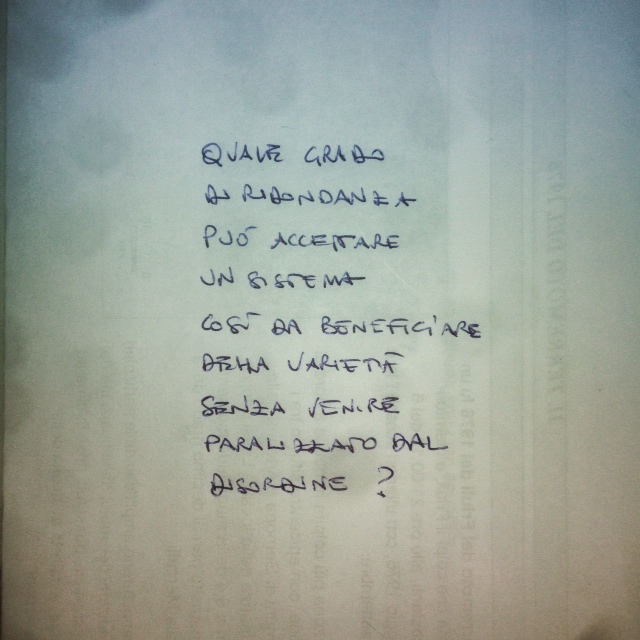 QUALE GRADO
DI RIDONDANZA
PUÓ ACCETTARE
UN SISTEMA
COSÌ DA BENEFICIARE
DELLA VARIETÀ
SENZA VENIRE
PARALIZZATO DAL
DISORDINE ?